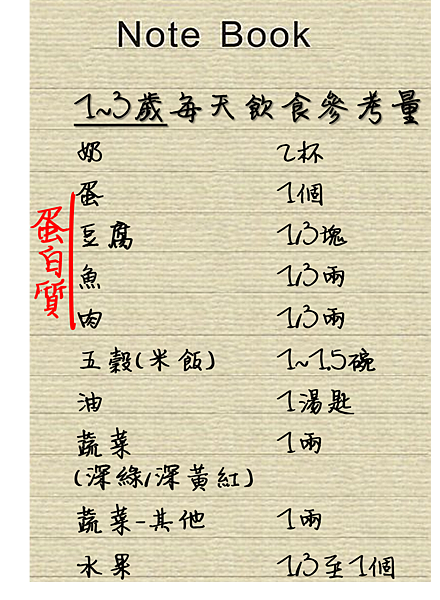 Note Book
1~3歲每天飲食參考量
奶 2杯
蛋 1個
豆腐 1/3塊
魚 1/3兩
肉 1/3兩
蛋白質
五穀(米飯) 1~1.5碗
油 1湯匙
蔬菜 1兩
(深綠/深黃紅)
蔬菜-其他 1兩
水果 1/3至1個